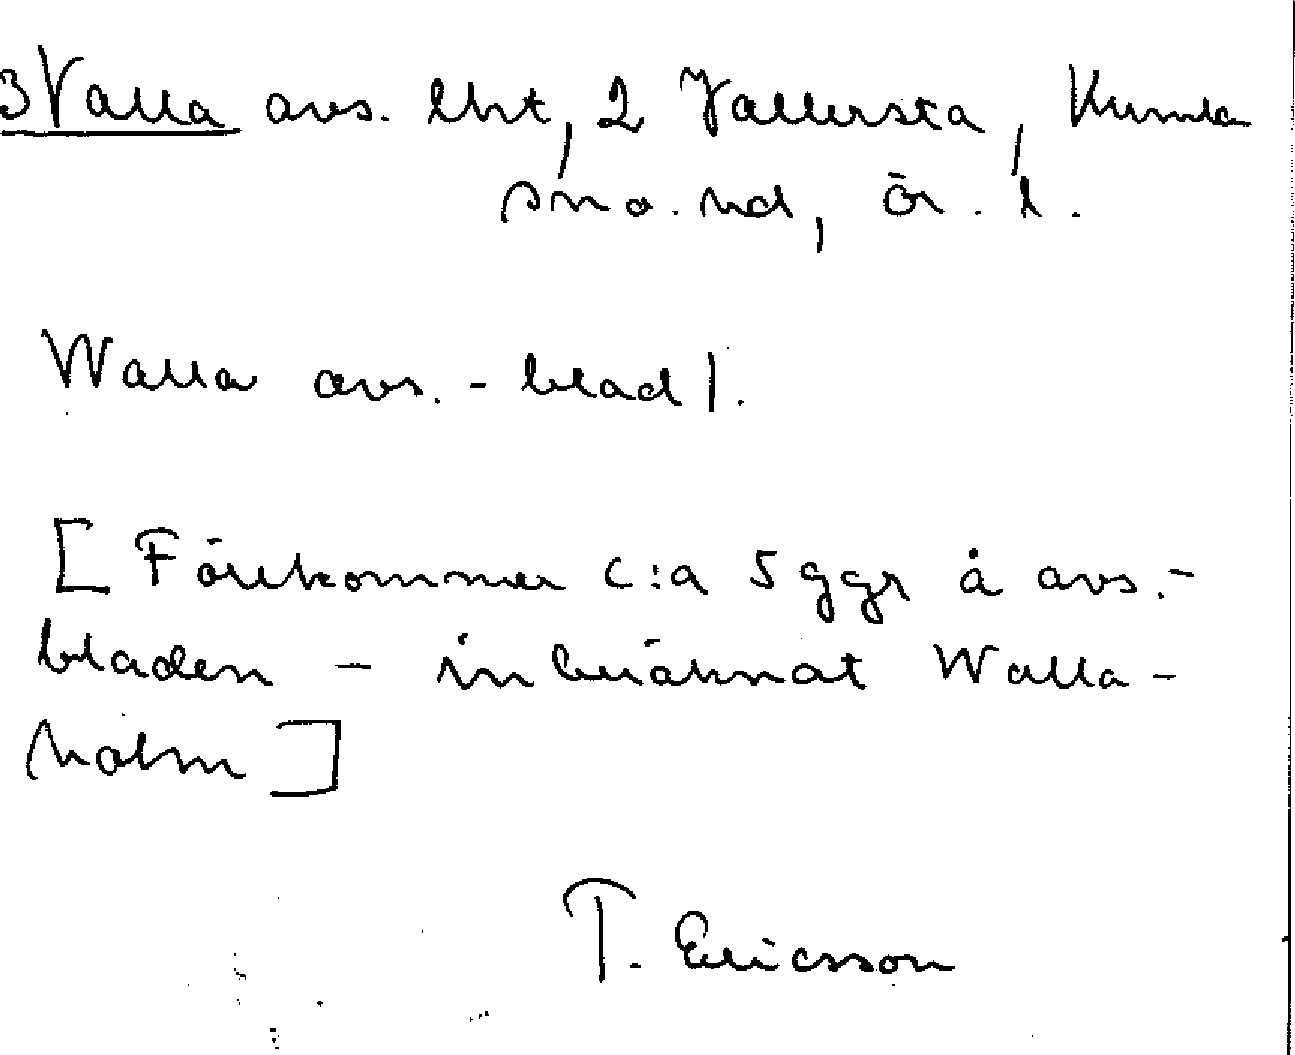 3 Valla avs. lht, 2 Vallersta, Kumla
sn o. hd, Ör. l.
Walla avs. - blad 1.
[Förekommer c:a 5 ggr å avs.-
bladen - inberäknat Walla-
holm]
T. Ericsson